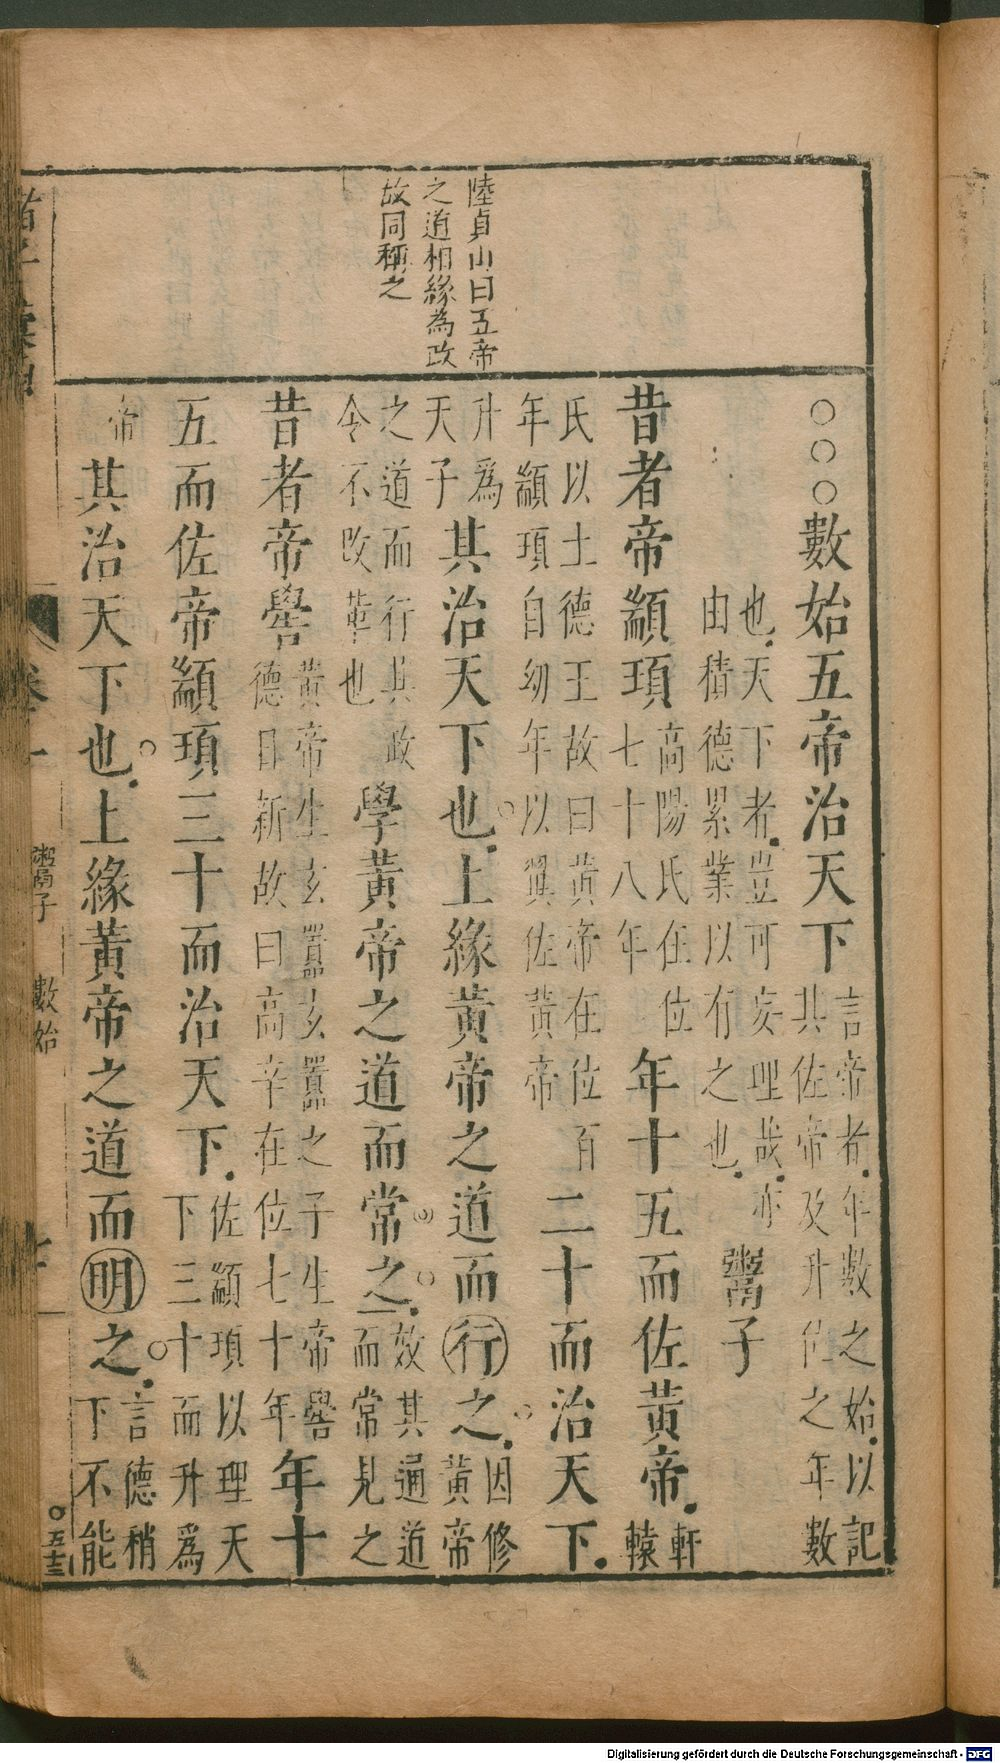 陸貞山曰五帝
之道相緣為政
故同稱之
○○○數始五帝治天下言帝者年數之始以記其佐帝及升佐之年數
也天下者豈可妄理哉亦由積德累業以有之也 鬻子
昔者帝顓頊高陽氏在位七十八年年十五而佐黃帝軒轅
氏以土德王故曰黃帝在位百年顓頊自幼年以翼佐黃帝二十而治天下
升爲天子其治天下也○上緣黃帝之道而行之○因修黃帝
之道而行其政令不改革也學黃帝之道而常之○效其通道而常見之
昔者帝嚳黃帝生玄囂玄囂之子生帝嚳德日新故曰高辛在位七十年年十
五而佐帝顓頊三十而治天下佐顓頊以理天下三十而升爲
帝其治天下也○上緣黃帝之道而明之○言德稍下不能
卷一
鬻子 數始
○五十三
Digitalisierung gefördert durch die Deutsche Forschungsgemeinschaft - DFG